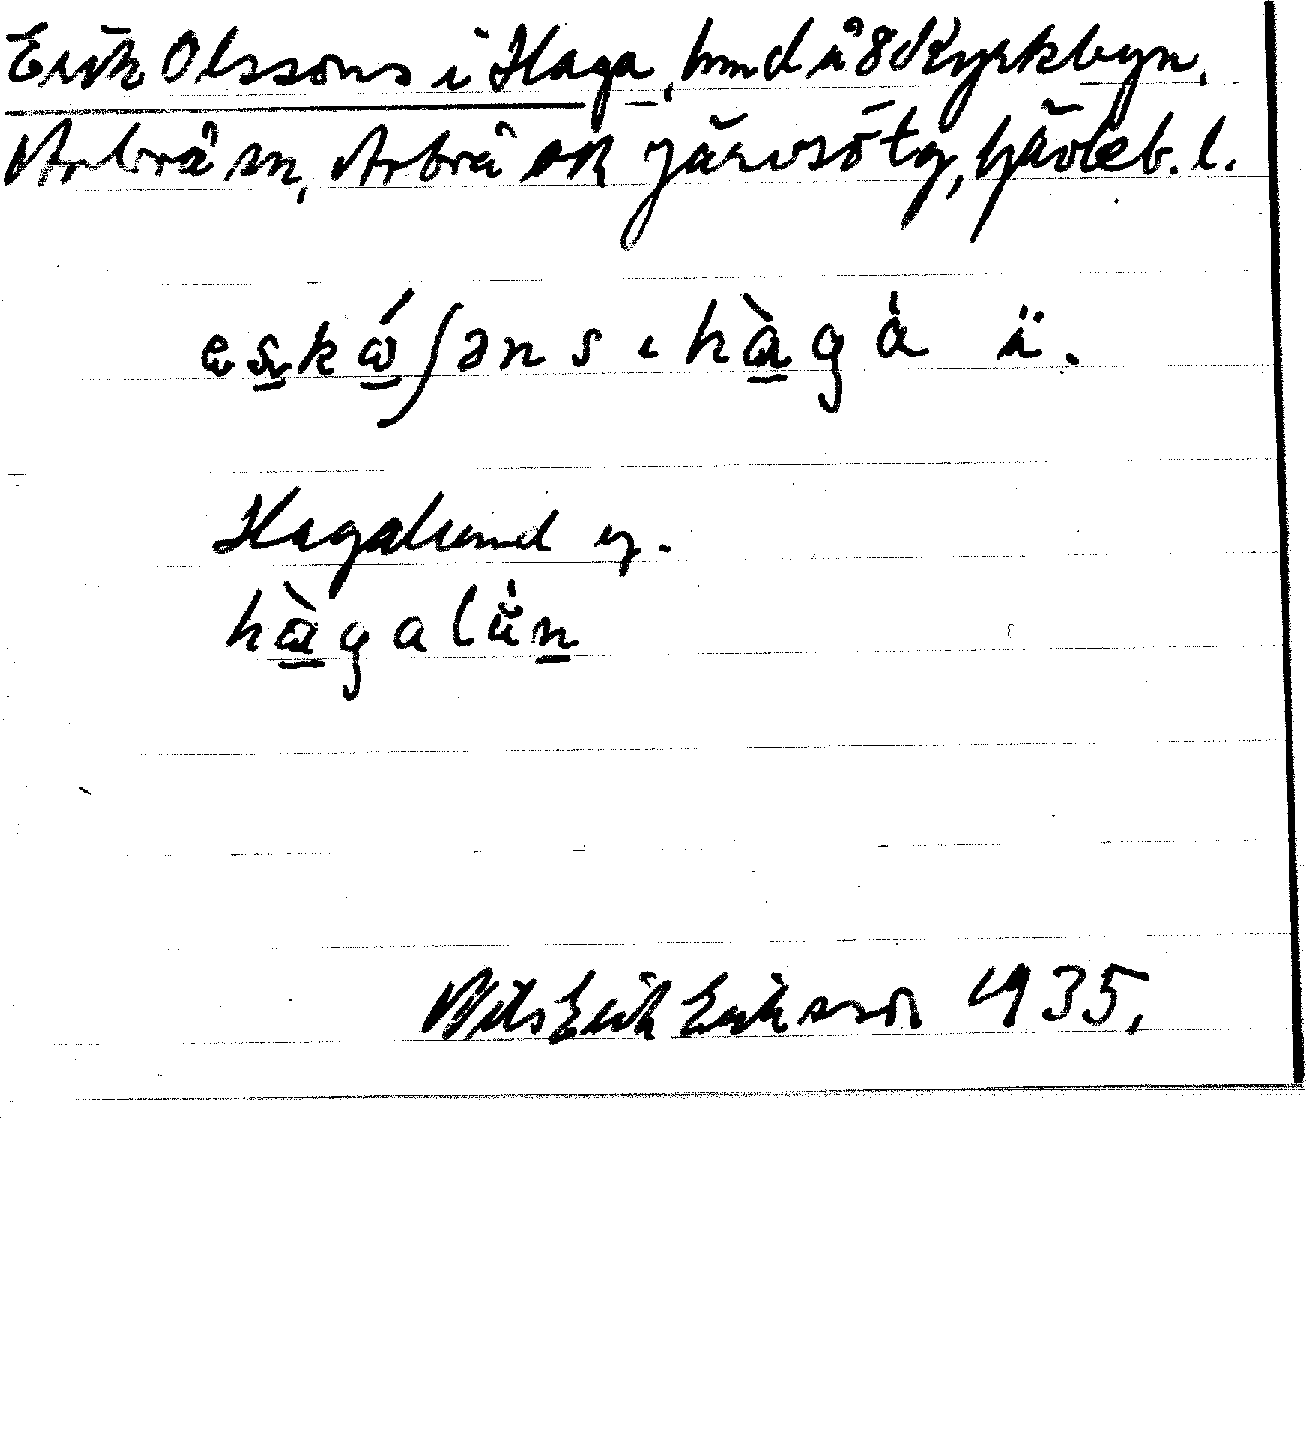 Erik Olssons i Haga, hmd å 8 Kyrkbyn,
Arbrå sn, Arbrå ok Järvsö tg, Gävleb. l.
eskóʃəns i hàgȧ ä.
Hagalund eg.
hàgalůn
Nils Erik Eriksson 1935.